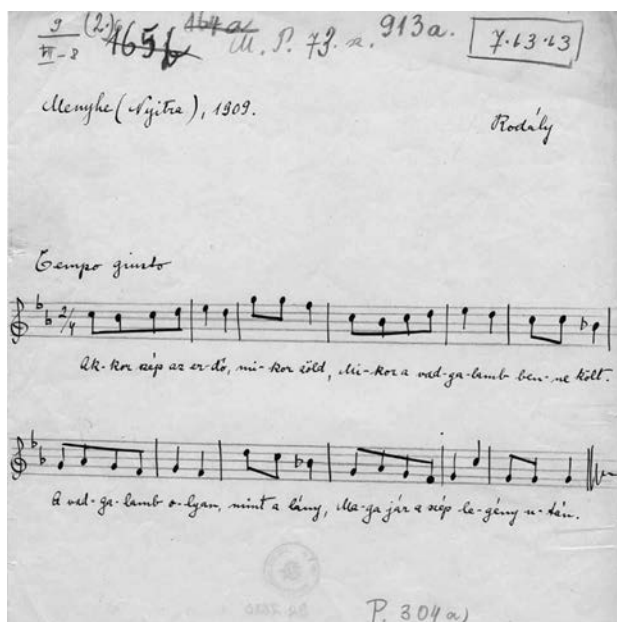 9 (2.) 165b 164a M. P. 79. 913a. 7.13.13
VI-8
Menyhe (Nyitra), 1909.
Kodály
Tempo giusto
2/4
Ak-kor szép az er-dő, mi-kor zöld, Mi-kor a vad-ga-lamb ben-ne költ.
A vad-ga-lamb o-lyan, mint a lány, Ma-ga jár a szép le-gény u-tán.
P. 304a)